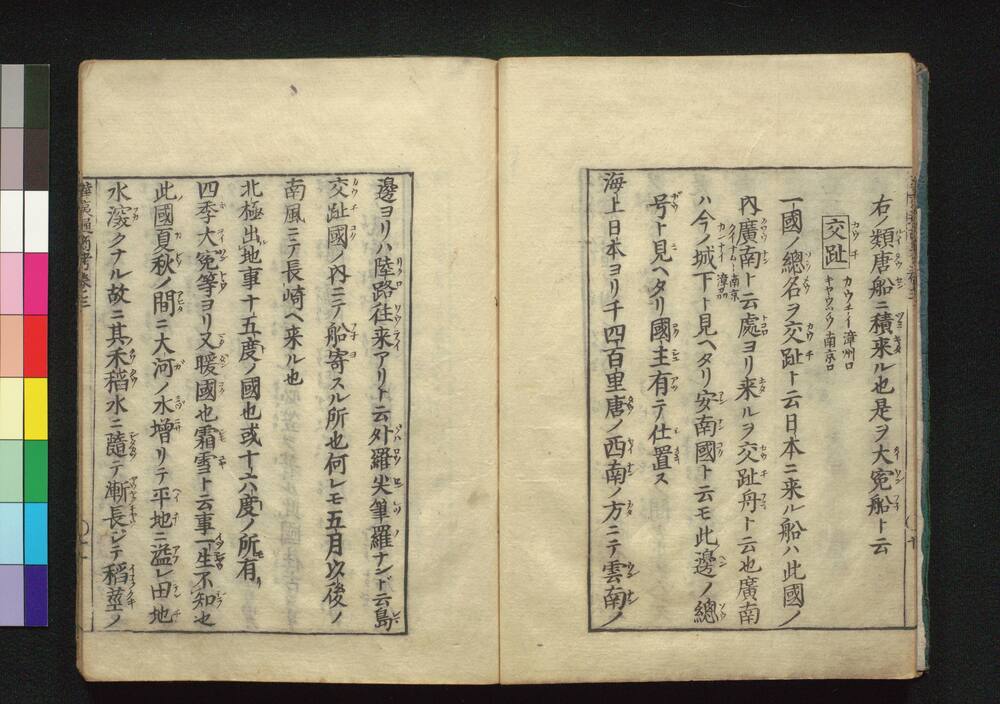 右ノ類唐船ニ積来ル也是ヲ大寃船ト云
交趾 カウチ カウチイ漳州口 キヤウツウ南京口
一國ノ總名ヲ交趾ト云日本ニ来ル船ハ此國ノ
内廣南ト云處ヨリ来ルヲ交趾舟ト云也廣南
ハ今ノ城下ト見ヘタリ安南國ト云モ此邊ノ總
号ト見ヘタリ國主有テ仕置ス
海上日本ヨリ千四百里唐ノ西南ノ方ニテ雲南ノ
邊ヨリハ陸路往来アリト云外羅尖筆羅ナンド云島
交趾國ノ内ニテ船寄スル所也何レモ五月以後ノ
南風ニテ長崎ヘ来ル也
北極出地事十五度ノ國也或十六度ノ所有リ
四季大寃等ヨリ又暖國也霜雪ト云事一生不知也
此國夏秋ノ間ニ大河ノ水増リテ平地ニ溢レ田地
水深クナル故ニ其禾稲水ニ隨テ漸長ジテ稲莖ノ
華夷通商考巻之三